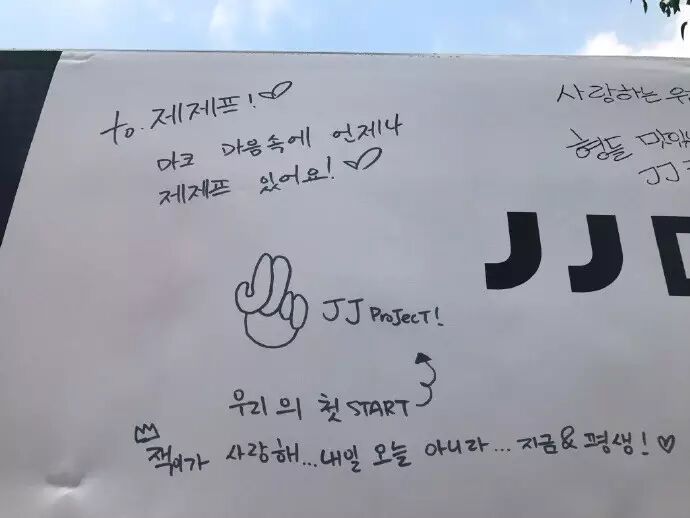 to. 제제프!♡
마크 마음속에 언제나
제제프 있어요!♡
사랑하는
형들
JJ
JJ
JJ ProJecT!
우리의 첫 START
잭이가 사랑해...내일 오늘 아니라...지금&평생!♡